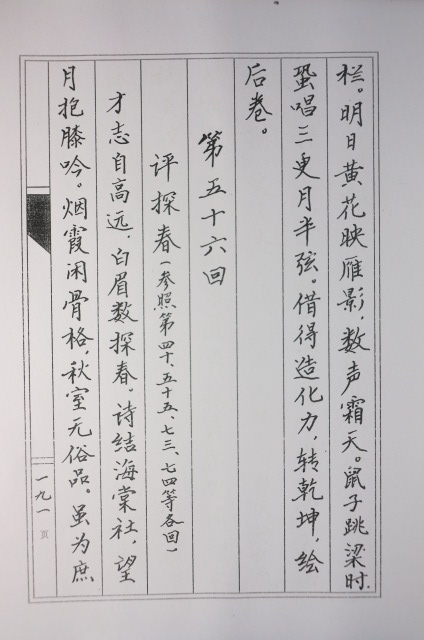 栏。明日黄花映雁影，数声霜天。鼠子跳梁时，
蛩唱三更月半弦。借得造化力，转乾坤，绘
后卷。
第五十六回
评探春（参照第四十、五十五、七三、七四等各回）
才志自高远，白眉数探春。诗结海棠社，望
月抱膝吟。烟霞闲骨格，秋室无俗品。虽为庶
一九一页